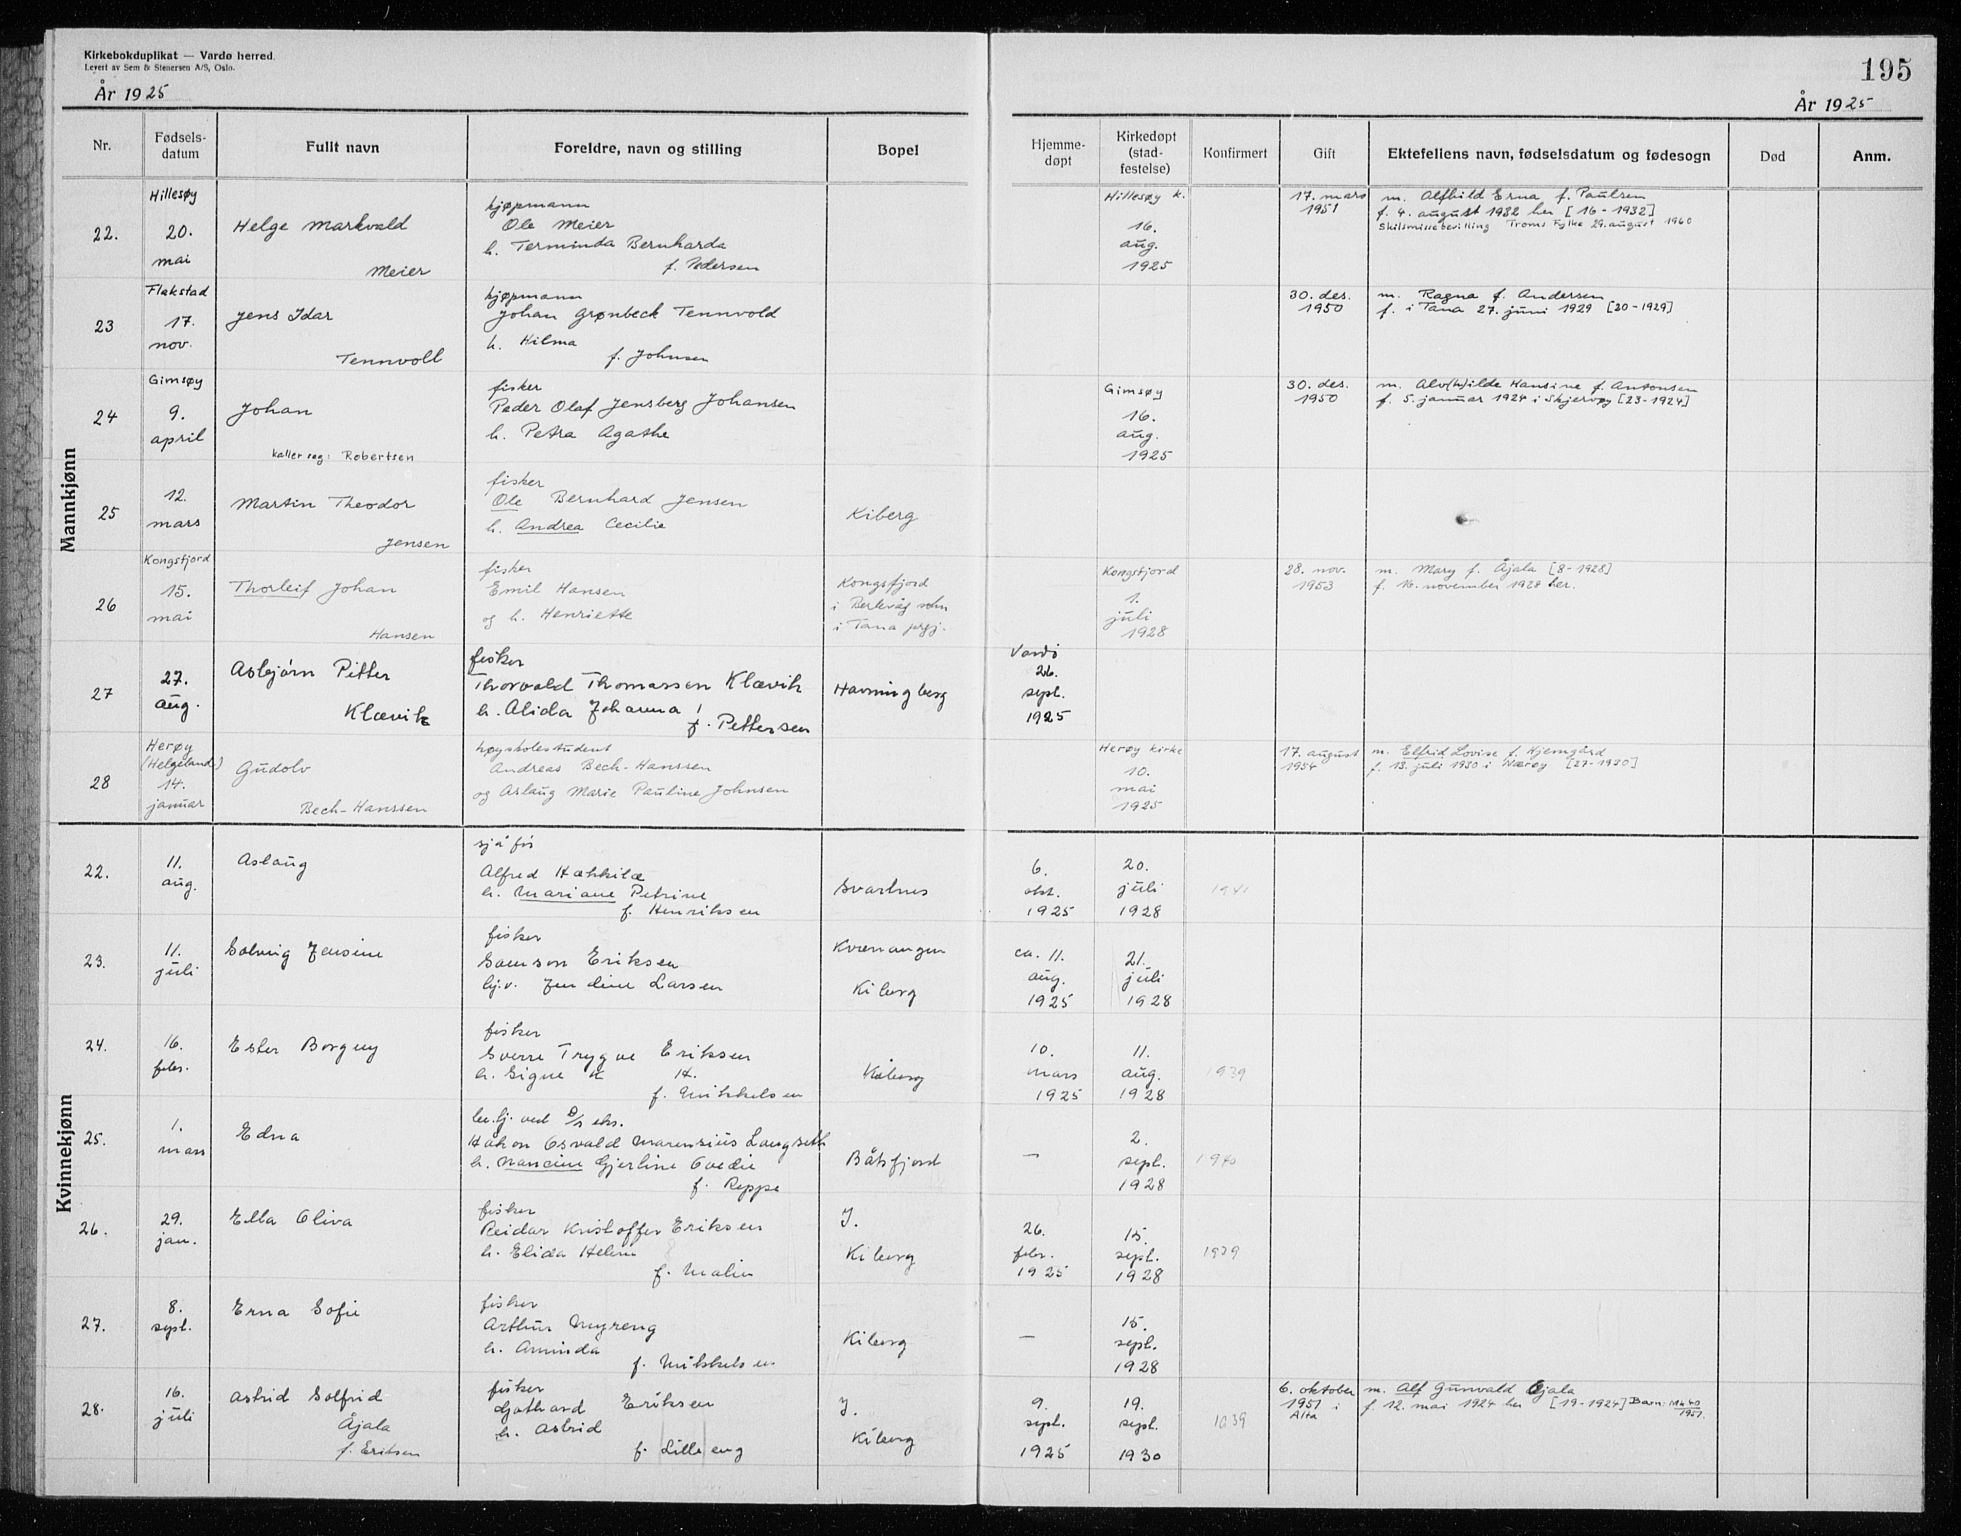 Kirkebokduplikat — Vardø herred.
Levert av Sem & Stenersen A/S, Oslo.
År 1925
195
År 1925
Nr.
Fødsels-
datum
Fullt navn
Foreldre, navn og stilling
Bopel
Hjemme-
døpt
Kirkedøpt
(stad-
festelse)
Konfirmert
Gift
Ektefellens navn, fødselsdatum og fødesogn
Død
Anm.
Mannkjønn
22.
Hillesøy
20.
mai
Helge Markvald
Meier
kjøpmann
Ole Meier
h. Terminda Bernharda
f. Pedersen
Hillesøy k.
16.
aug.
1925
17. mars
1951
m. Alfhild Erna f. Paulsen
f. 4. august 1932 her [16-1932]
Skilsmissebevilling Troms Fylke 29. august 1960
23
Flakstad
17.
nov.
Jens Idar
Tennvoll
kjøpmann
Johan Grønbeck Tennvold
h. Hilma
f. Johnsen
30. des.
1950
m. Ragna f. Andersen
f. i Tana 27. juni 1929 [20-1929]
24
Gimsøy
9.
april
Johan
kaller seg: Robertsen
fisker
Peder Olaf Jensberg Johansen
h. Petra Agathe
Gimsøy
16.
aug.
1925
30. des.
1950
m. Alv(h)ilde Hansine f. Antonsen
f. 5. januar 1924 i Skjervøy [23-1924]
25
12.
mars
Martin Theodor
Jensen
fisker
Ole Bernhard Jensen
h. Andrea Cecilie
Kiberg
26
Kongsfjord
15.
mai
Thorleif Johan
Hansen
fisker
Emil Hansen
og h. Henriette
Kongsfjord
i Berlevåg sokn
i Tana prgj.
Kongsfjord
1.
juli
1928
28. nov.
1953
m. Mary f. Åjala [8-1928]
f. 16. november 1928 her.
27
27.
aug.
Asbjørn Pitter
Klævik
fisker
Thorvald Thomassen Klævik
h. Alida Johanna
f. Pettersen
Havningberg
Vardø
26.
sept.
1925
28
Herøy
(Helgeland)
14.
januar
Gudolv
Bech-Hanssen
høyskolestudent
Andreas Bech-Hanssen
og Aslaug Marie Pauline Johnsen
Herøy kirke
10.
mai
1925
17. august
1954
m. Elfrid Lovise f. Hjemgård
f. 13. juli 1930 i Nærøy [27-1930]
Kvinnekjønn
22.
11.
aug.
Aslaug
sjåfør
Alfred Hækkilæ
h. Mariane Petrine
f. Henriksen
Svartnes
6.
okt.
1925
20.
juli
1928
1941
23.
11.
juli
Solveig Jensine
fisker
Samson Eriksen
hj.v. Jendine Larsen
Kvænangen
Kiberg
ca. 11.
aug.
1925
21.
juli
1928
24.
16.
febr.
Ester Borgny
fisker
Sverre Trygve Eriksen
h. Signe H.
f. Mikkelsen
Kiberg
10.
mars
1925
11.
aug.
1928
1939
25.
1.
mars
Edna
Håkon Osvald Marensius Langseth
h. Nancine Gjertine Ovedie
f. Reppe
Båtsfjord
—
2.
sept.
1928
1940
26.
29.
jan.
Ella Oliva
fisker
Reidar Kristoffer Eriksen
h. Elida Helene
f. Malin
I.
Kiberg
26.
febr.
1925
15.
sept.
1928
1939
27.
8.
sept.
Erna Sofie
fisker
Arthur Myreng
h. Aminda
f. Mikkelsen
Kiberg
—
15.
sept.
1928
28.
16.
juli
Astrid Solfrid
Åjala
f. Eriksen
fisker
Gothard Eriksen
h. Astrid
f. Lilleeng
I.
Kiberg
9.
sept.
1925
19.
sept.
1930
1939
6. oktober
1951 i
Alta
m. Alf Gunvald Åjala
f. 12. mai 1924 her [19-1924] Barn:
1951.